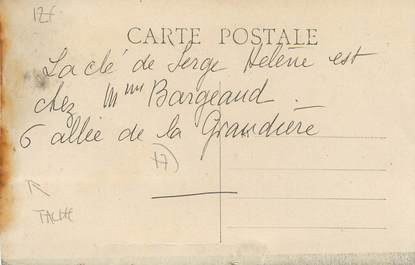 12f
CARTE POSTALE
La clé de Serge Helène est
chez Mme Bargeaud.
6 allée de la Grandière
17)
TACHE